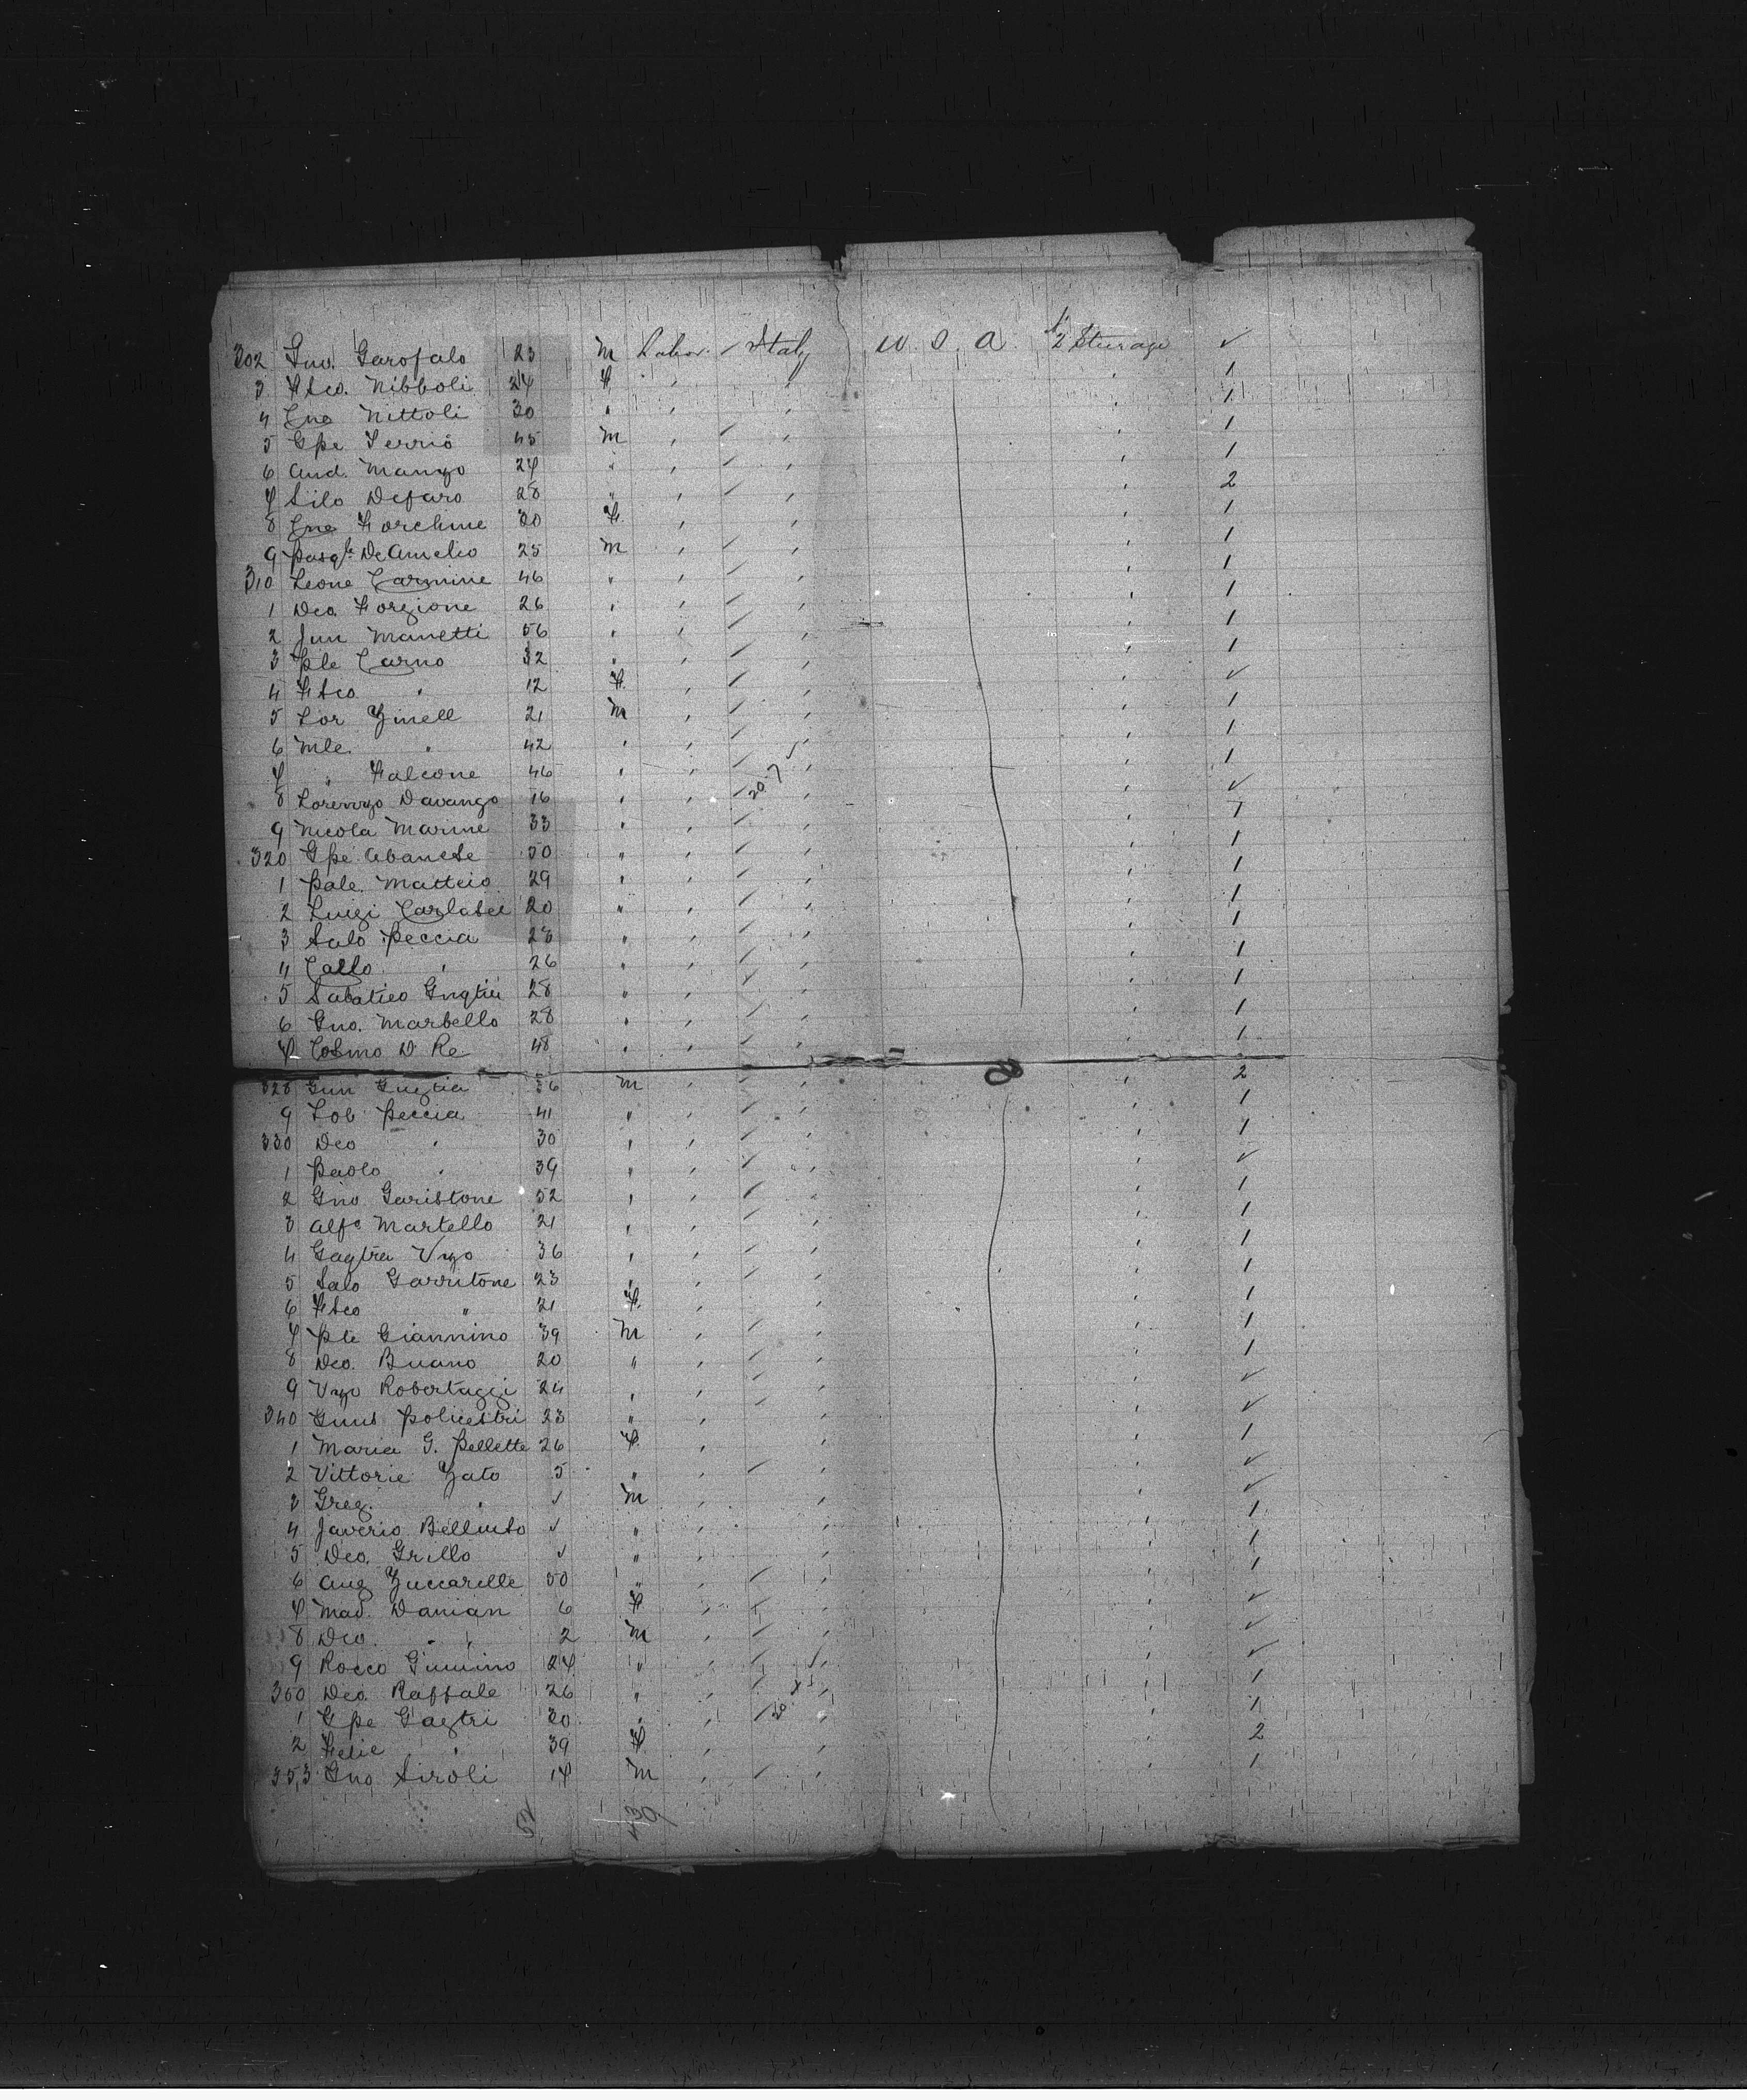 302 Gno. Garofalo 23 M Labor. / Italy U. S. A. 1/2 Sturage ✓
3 Fsco. Nibboli 24 F " " " 1
4 Cno Nittoli 30 " " " " 1
5 Gpe Ferrio 45 M " / " " 1
6 And. Mango 24 " " / " " 1
7 Silo Defaro 28 " " / " " 2
8 Cno Forchine 30 F " " " 1
9 Pasqle De Amelio 25 M " / " " 1
310 Leone Carmine 46 " " / " " 1
1 Dco. Forgione 26 " " / " " 1
2 Jun Manetti 56 " " / " " 1
3 Ple Carno 32 " " / " " 1
4 Fsco " 12 F " / " " ✓
5 Lor Zinell 21 M " / " " 1
6 Mle. " 42 " " / " " 1
7 " Falcone 46 " " / " " 1
8 Lorenzo Davango 16 " " / " " ✓
9 Nicola Marine 33 " " / " " 1
320 Gpe Abanese 50 " " / " " 1
1 Pale. Matteio 29 " " / " " 1
2 Luigi Carlasee 20 " " / " " 1
3 Salo Peccia 28 " " / " " 1
4 Callo " 26 " " / " " 1
5 Sabatieo 28 " " / " " 1
6 Gno. Marbello 28 " " / " " 1
7 Cosmo D Re 48 " " / " " 1
328 Gun Guglia 36 M " / " " 2
9 Lob Peccia 41 " " / " " 1
330 Dco " 30 " " / " " 1
1 Paolo " 39 " " / " " ✓
2 Gno Garistone 52 " " / " " 1
3 Alfo Martello 21 " " / " " 1
4 Gagtra Vzo 36 " " / " " 1
5 Salo Garritone 23 " " / " " 1
6 Fsco " 21 F " " " 1
7 Ple Giannino 39 M " / " " 1
8 Dco. Buano 20 " " / " " 1
9 Vzo Robertaggi 24 " " / " " ✓
340 Policestri 23 " " / " " ✓
1 Maria G. Pellette 26 F " " " 1
2 Vittorie Zato 5 " " / " " ✓
3 Greg. " ✓ M " " " ✓
4 Javerio Belluso ✓ " " " " 1
5 Dco. Grillo ✓ " " " " 1
6 Aug Zuccarelle 50 " " / " " 1
7 Mad. Damian 6 F " / " " ✓
8 Dco. " 2 M " / " " ✓
9 Rocco Gumino 24 " " / " " ✓
350 Dco. Raffale 26 " " / " " 1
1 Gpe Gagtri 30 " " / " " 1
2 Felie " 39 F " " " 2
353 Gno Siroli 17 M " / " " 1